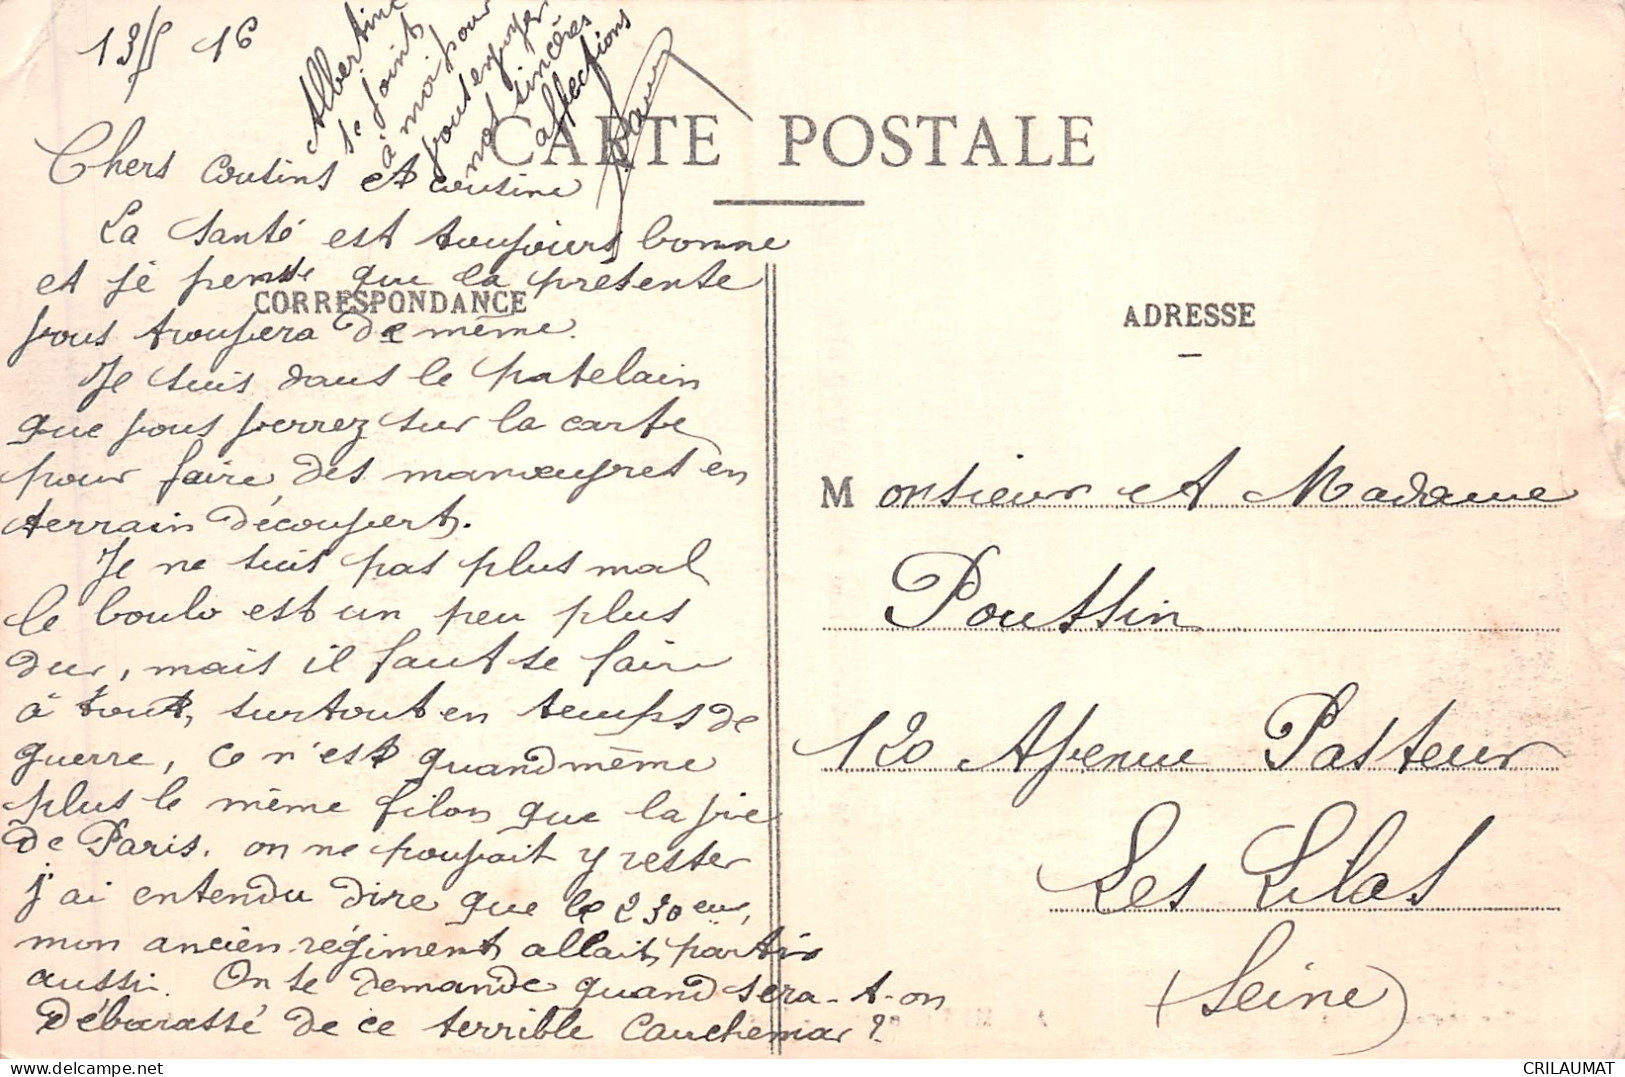 13/5 16
Albertine
se joint
à moi pour
vous envoyer
nos sincères
affections
CARTE POSTALE
Chers cousins et cousine
La santé est toujours bonne
et je pense que la présente
CORRESPONDANCE
vous trouvera de même.
Je suis dans le patelain
que vous verrez sur la carte
pour faire des manœuvres en
terrain découvert.
Je ne suis pas plus mal
le boulo est un peu plus
dur, mais il faut se faire
à tout, surtout en temps de
guerre, ce n'est quand même
plus le même filon que la vie
de Paris. on ne pouvait y rester
j'ai entendu dire que le 230 eme,
mon ancien régiment allait partir
aussi. On se demande quand sera-t-on
débarassé de ce terrible cauchemar?
ADRESSE
Monsieur et Madame
Poussin
120 Avenue Pasteur
Les Lilas
(Seine)
CRILAUMAT